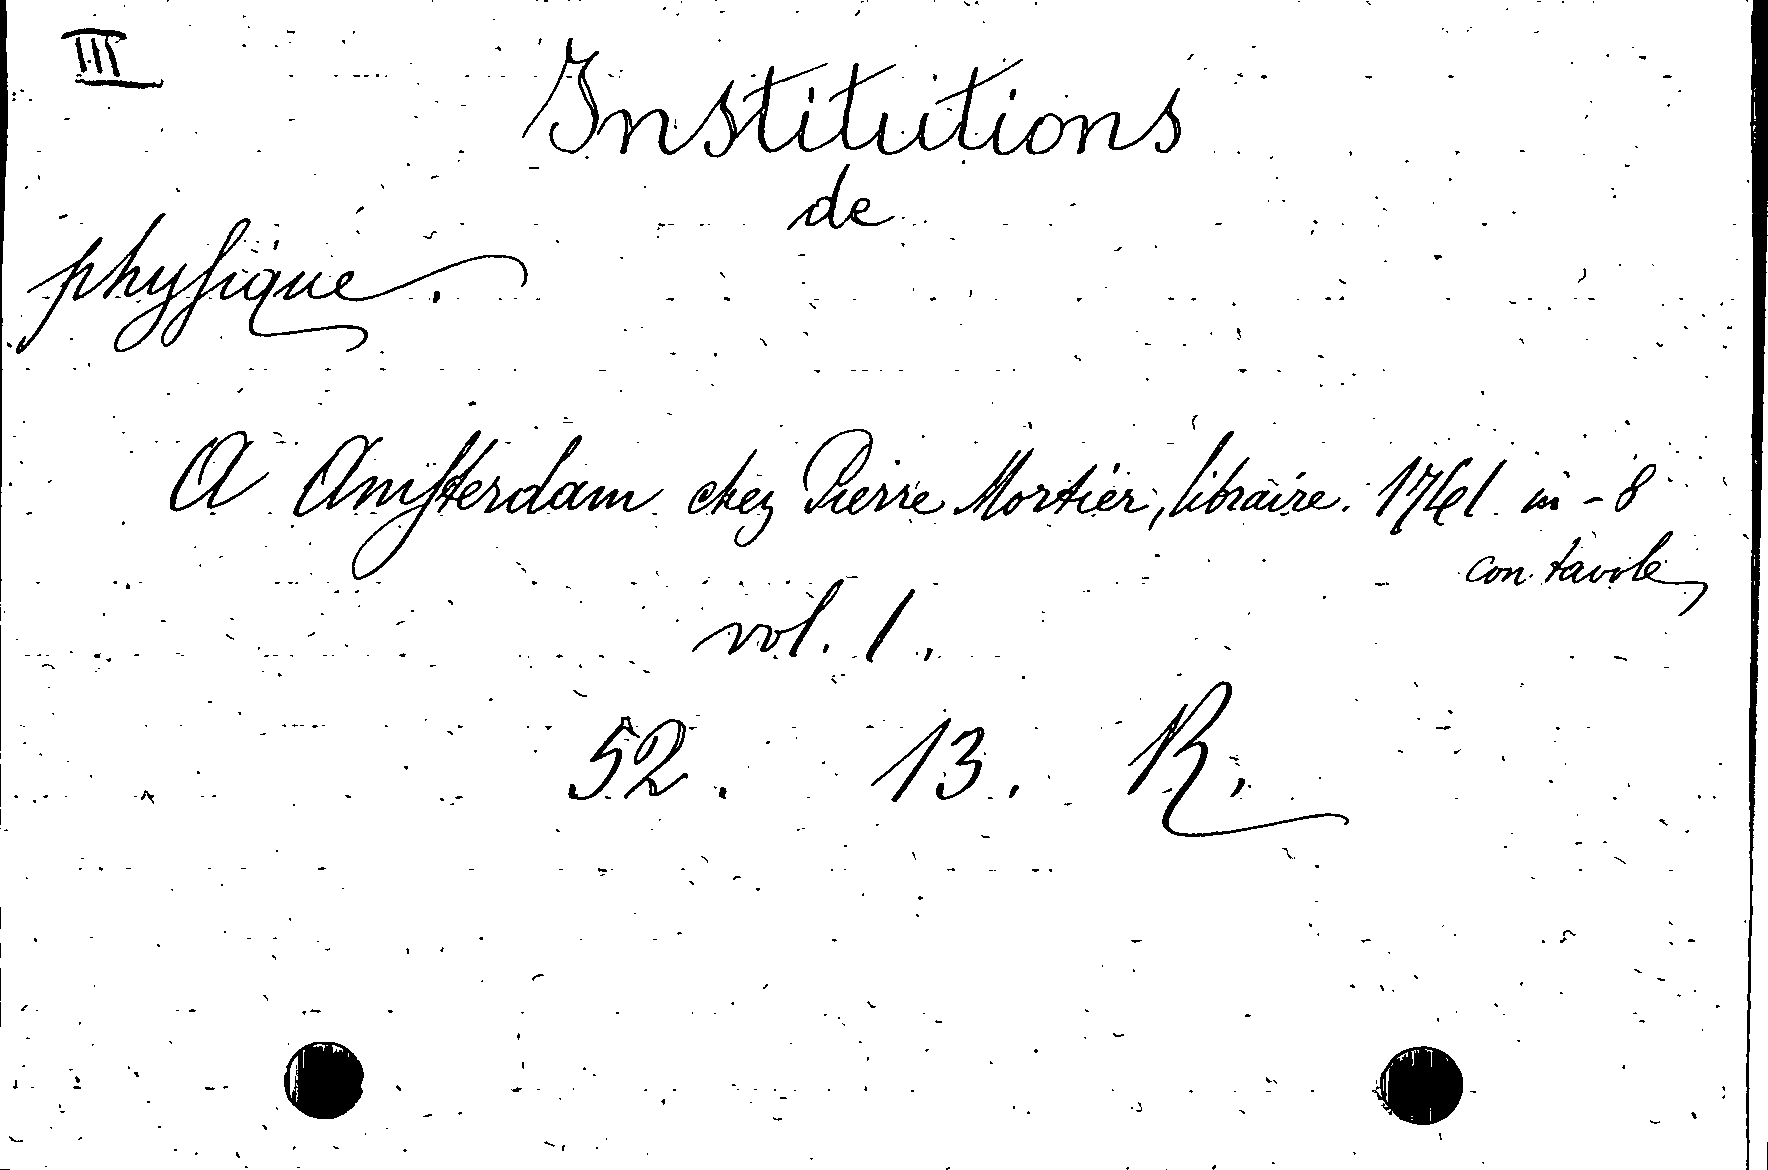 III
Institutions
de
phyſique.
A Amſterdam chez Pierre Mortier, libraire. 1741 in-8
con tavole
vol. 1.
52. 13. R.